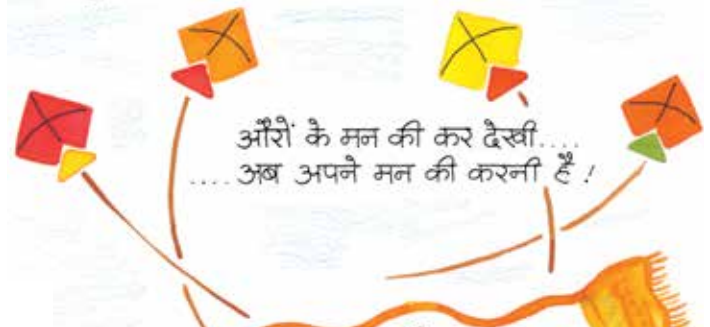 औरों के मन की कर देखी....
....अब अपने मन की करनी है!